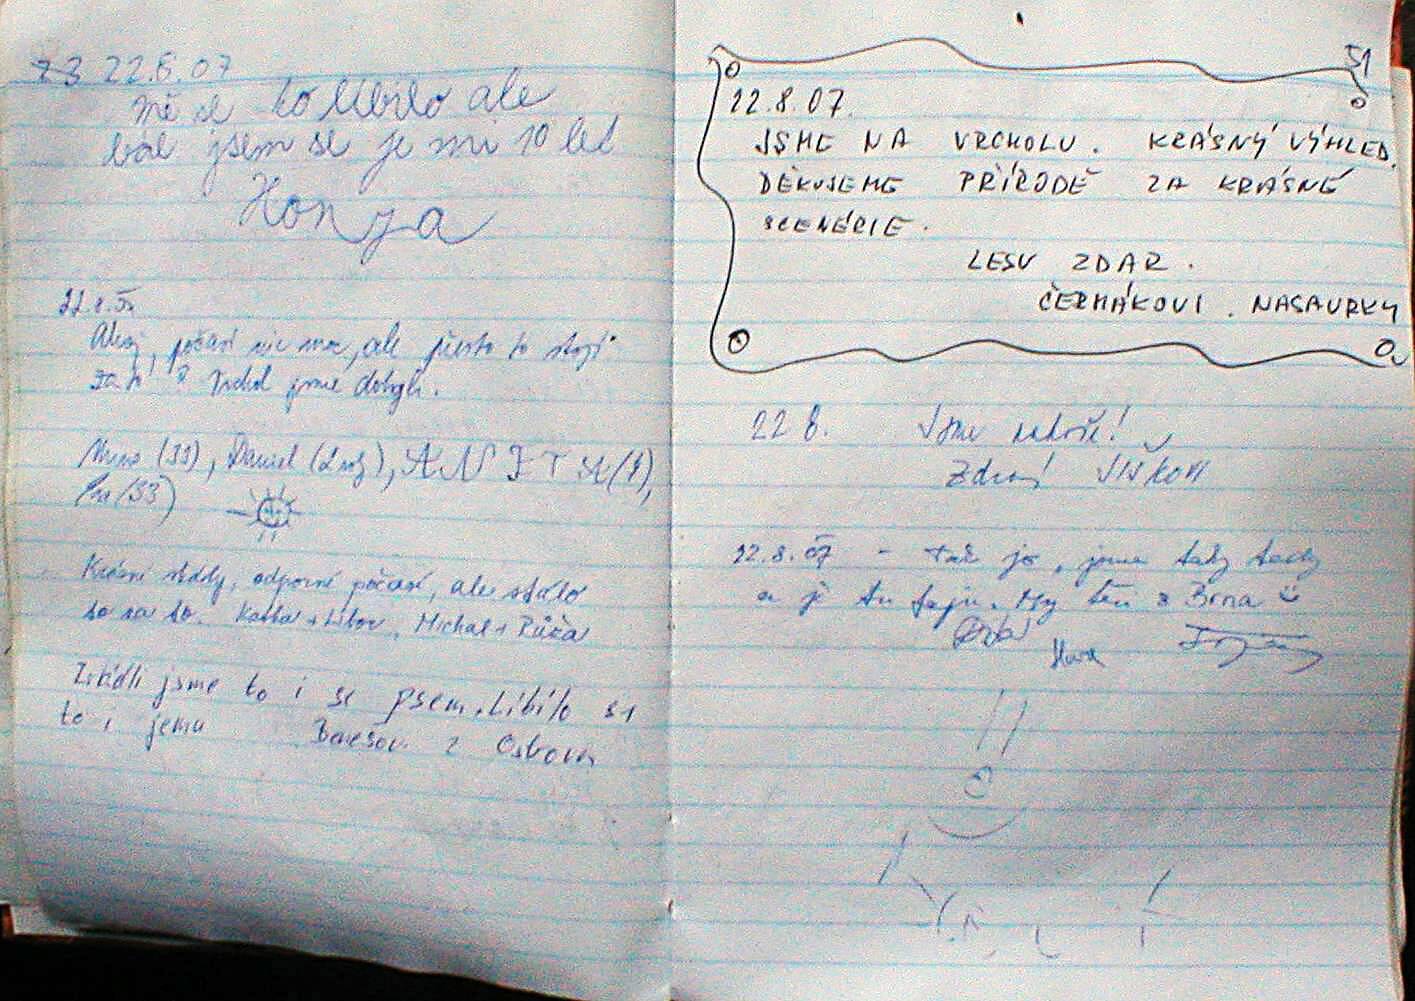 22.8.07
mě se to líbilo ale
bál jsem se je mi 10 let
Honza
Ahoj, počasí nic moc, ale přesto to stojí
za to! Vrchol jsme dobyli.
(33), Daniel ANETA
(33)
Krásné skály, odporné počasí, ale stálo
to za to. Katka + Libor, Michal + Půča
Zvládli jsme to i se psem. Líbilo si
to i jemu z Ostrova
51
22.8.07.
JSME NA VRCHOLU. KRÁSNÝ VÝHLED.
DĚKUJEME PŘÍRODĚ ZA KRÁSNÉ
SCENÉRIE.
LESU ZDAR.
ČERMÁKOVI. NASAVRKY
22 8. Jsme nahoře!
Zdraví
22.8.07 - Tak jo, jsme tady tedy
a je tu fajn. My z Brna